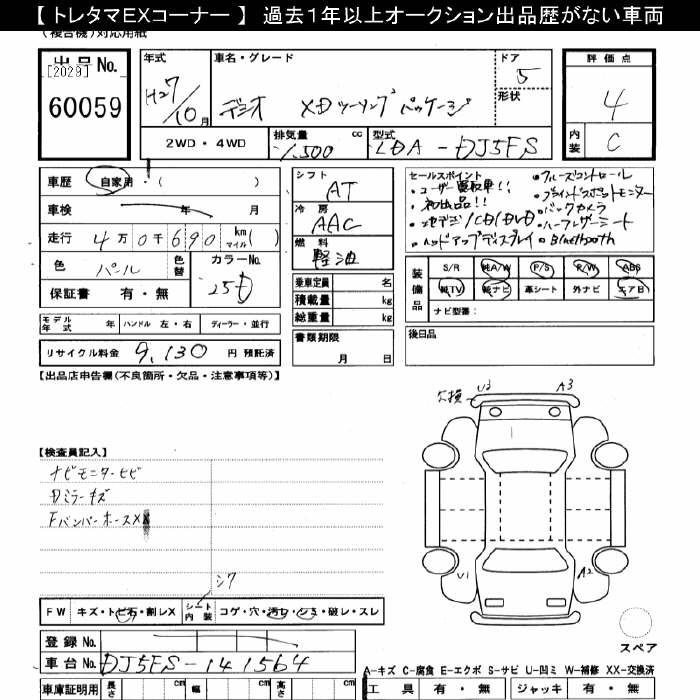 【 トレタマEXコーナー 】 過去1年以上オークション出品歴がない車両
(複合機)対応用紙
出品No.
[2029]
60059
年式
H27/10月
車名・グレード
デミオ XDツーリングパッケージ
ドア
5
形状
2WD・4WD
排気量 cc
1,500
型式
LDA-DJ5FS
評価点
4
内装
C
車歴 自家用・( )
車検 年 月
走行 4万0千690 km マイル( )
色 パール
色替
カラーNo.
25D
保証書 有・無
シフト
AT
冷房
AAC
燃料
軽油
乗車定員 名
積載量 kg
総重量 kg
セールスポイント
・ユーザー買取車!!
・初出品!!
・地デジ/CD/DVD
・ヘッドアップディスプレイ
・クルーズコントロール
・ブラインドスポットモニター
・バックカメラ
・ハーフレザーシート
・Bluetooth
装備品
S/R 純A/W P/S P/W ABS
純TV 純ナビ 革シート 外ナビ エアB
ナビ型番:
モデル年式 年
ハンドル 左・右
ディーラー・並行
リサイクル料金 9,130 円 預託済
書類期限
月 日
後日品
【出品店申告欄(不良箇所・欠品・注意事項等)】
欠損 U3 A3
U1 A2
【検査員記入】
ナビモニターヒビ
Dミラーキズ
Fバンパーホース X
シワ
FW キズ・トビ石・割レX
シート内装 コゲ・穴・汚レ・シミ・破レ・スレ
登録No.
車台No. DJ5FS-141564
車庫証明用 長さ cm 幅 cm 高さ cm
スペア
A-キズ C-腐食 E-エクボ S-サビ U-凹ミ W-補修 XX-交換済
工具 有・無 ジャッキ 有・無